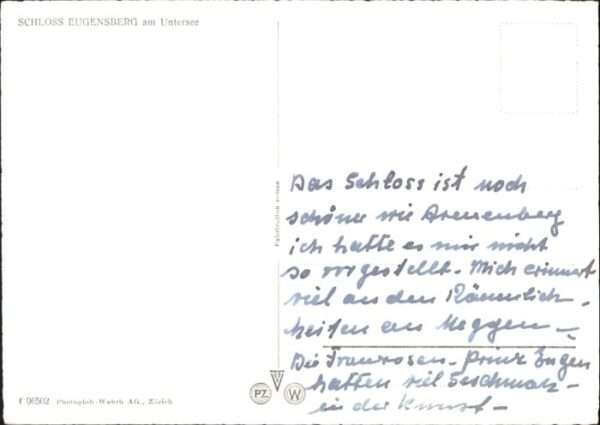 SCHLOSS EUGENSBERG am Untersee
Das Schloss ist noch
schöner wie Arenenberg
ich hatte es mir nicht
so vorgestellt - Mich erinnert
viel an den Räumlich-
keiten an Meggen -
Die Franzosen - Prinz Eugen
hatten viel Geschmack -
in der Kunst -
f 06502 Photoglob-Wehrli AG., Zürich
PZ
W